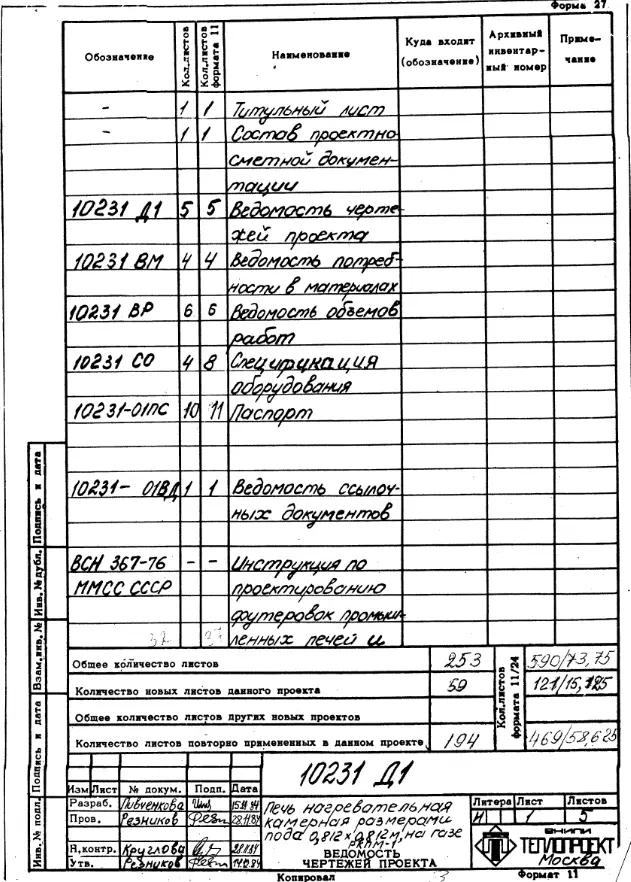 Форма 27
Обозначение Кол.листов Кол.листов формата 11 Наименование Куда входит (обозначение) Архивный инвентар-ный номер Приме-чание
- 1 1 Титульный лист
- 1 1 Состав проектно
сметной докумен-
тации
10231 Д1 5 5 Ведомость черте-
жей проекта
10231 ВМ 4 4 Ведомость потреб-
ности в материалах
10231 ВР 6 6 Ведомость объемов
работ
10231 СО 4 8 Спецификация
оборудования
10231-01ПС 10 11 Паспорт
10231- 01ВД 1 1 Ведомость ссылоч-
ных документов
ВСН 367-76 - - Инструкция по
ММСС СССР проектированию
футеровок промыш-
ленных печей и
Общее количество листов 253 Кол.листов формата 11/24 590/73,75
Количество новых листов данного проекта 59 121/15,125
Общее количество листов других новых проектов
Количество листов повторно примененных в данном проекте 194 469/58,625
Инв. № подл. Подпись и дата Взам.инв. № Инв. № дубл. Подпись и дата
10231 Д1
Изм Лист № докум. Подп. Дата
Разраб. Ливченкова 15.11.84
Пров. Резников 28.11.84
Н.контр. Круглова
Утв. Резников
Печь нагревательная
камерная размерами
пода 0,812х0,812м, на газе
РКПМ-1
ВЕДОМОСТЬ
ЧЕРТЕЖЕЙ ПРОЕКТА
Литера Лист Листов
И 1 5
ВНИПИ
ТЕПЛОПРОЕКТ
Москва
Копировал Формат 11